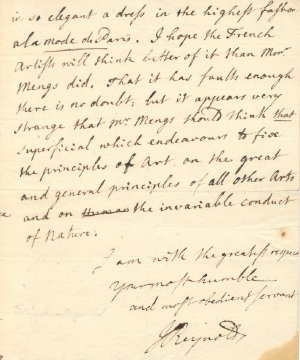 in so elegant a dress in the highest fashion
a la mode de Paris. I hope the French
Artists will think better of it than Monr.
Mengs did. That it has faults enough
there is no doubt, but it appears very
strange that Mr. Mengs should think that
superficial which endeavours to fix
the principles of Art on the great
and general principles of all other Arts
and on the invariable conduct
of Nature.
I am with the greatest respect
Your most humble
and most obedient servant
J Reynolds